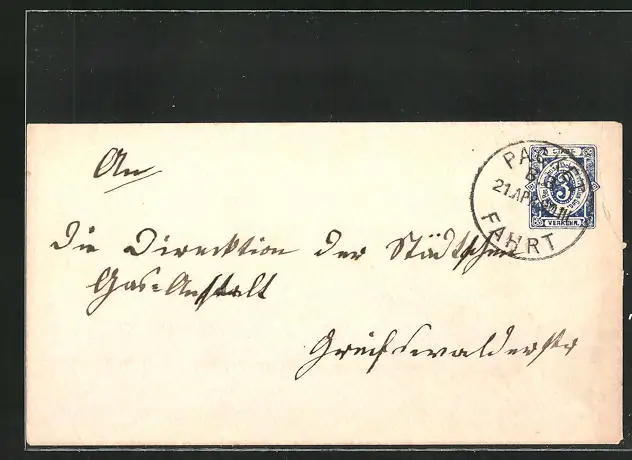 An
die Direktion der Städtschen
Gas=Anstalt
Greifswalderstr
PACKET
21.APR
FAHRT
3
VERKEHR.